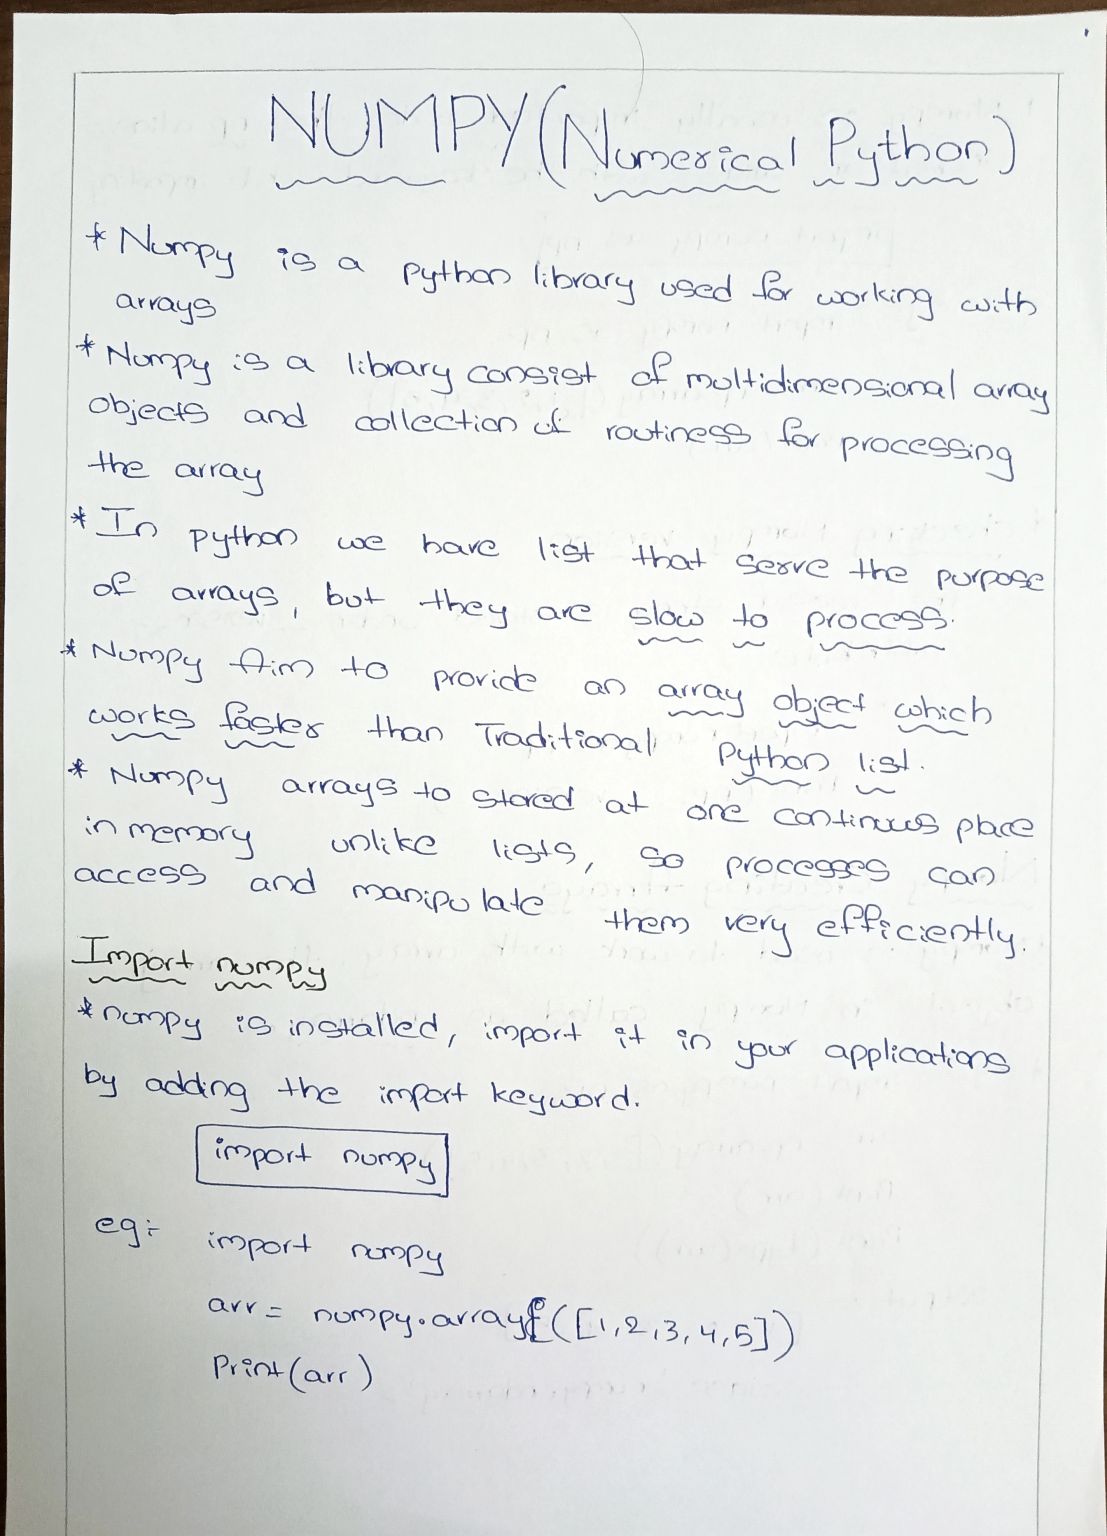 NUMPY (Numerical Python)
* Numpy is a python library used for working with
arrays
* Numpy is a library consist of multidimensional array
objects and collection of routiness for processing
the array
* In python we have list that serve the purpose
of arrays, but they are slow to process.
* Numpy Aim to provide an array object which
works faster than Traditional Python list.
* Numpy arrays to stored at one continuous place
in memory unlike lists, so processes can
access and manipulate them very efficiently.
Import numpy
* numpy is installed, import it in your applications
by adding the import keyword.
import numpy
eg:- import numpy
arr = numpy.array([1,2,3,4,5])
Print(arr)